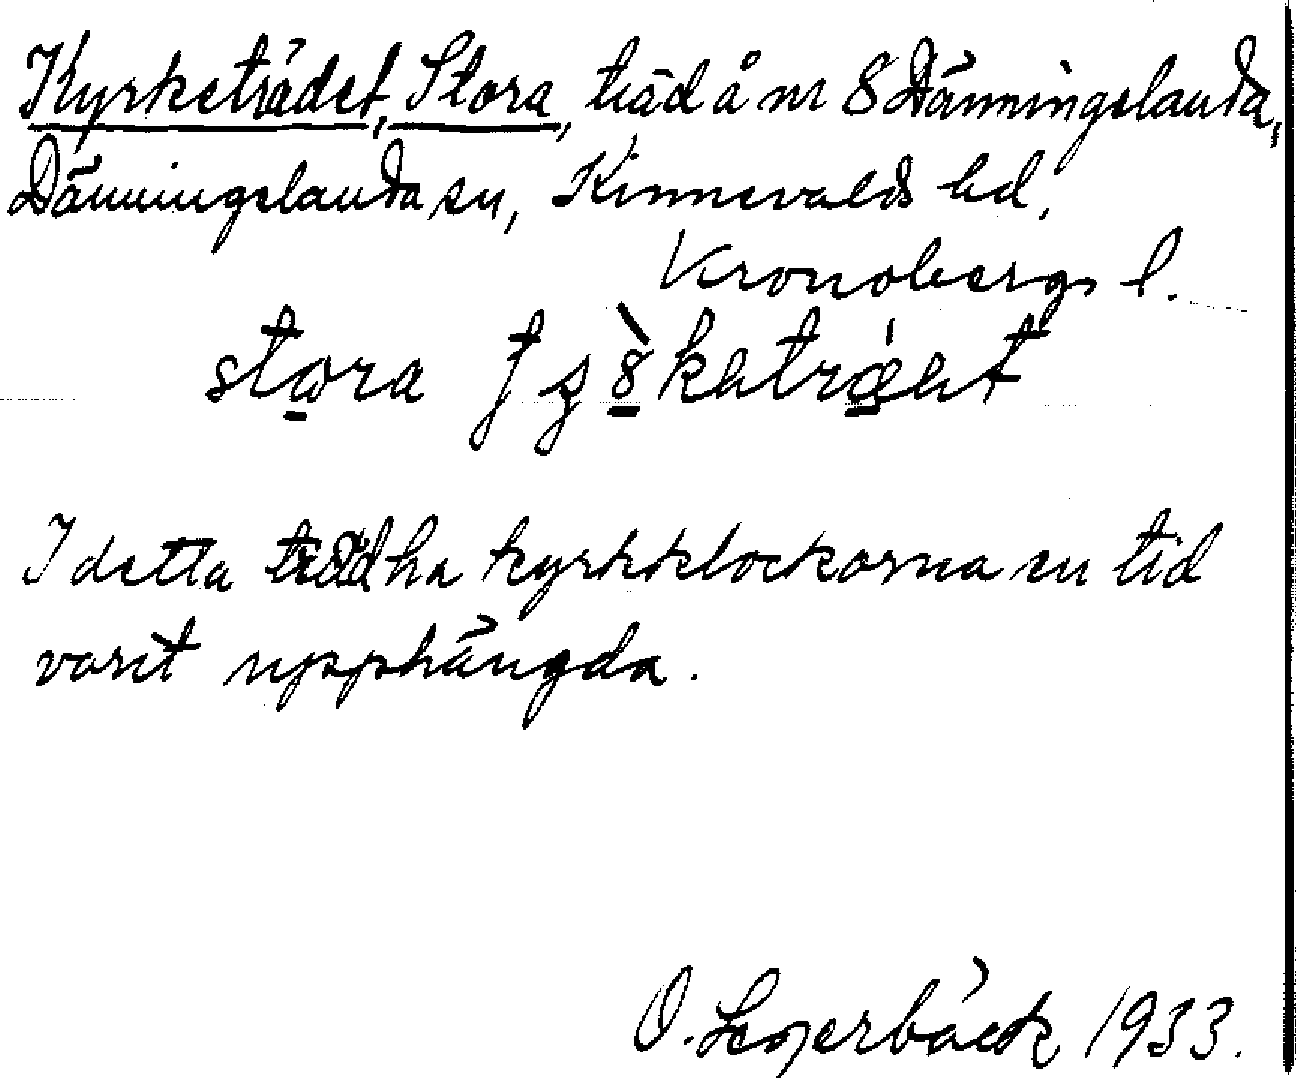 Kyrketrädet, Stora, träd å nr 8 Dänningelanda,
Dänningelanda sn, Kinnevalds hd,
Kronobergs l.
stora
I detta träd ha kyrkklockorna en tid
varit upphängda.
O. Legerbäck 1933.